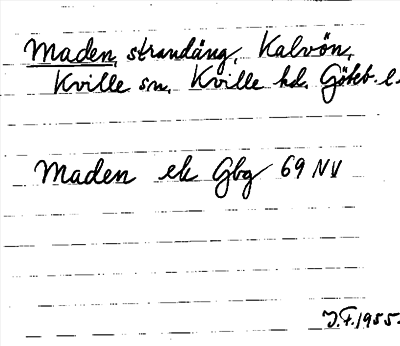 Maden, strandäng, Kalvön,
Kville sn. Kville hd. Göteb. l.
Maden ek Gbg 69 NV
J.F. 1955.